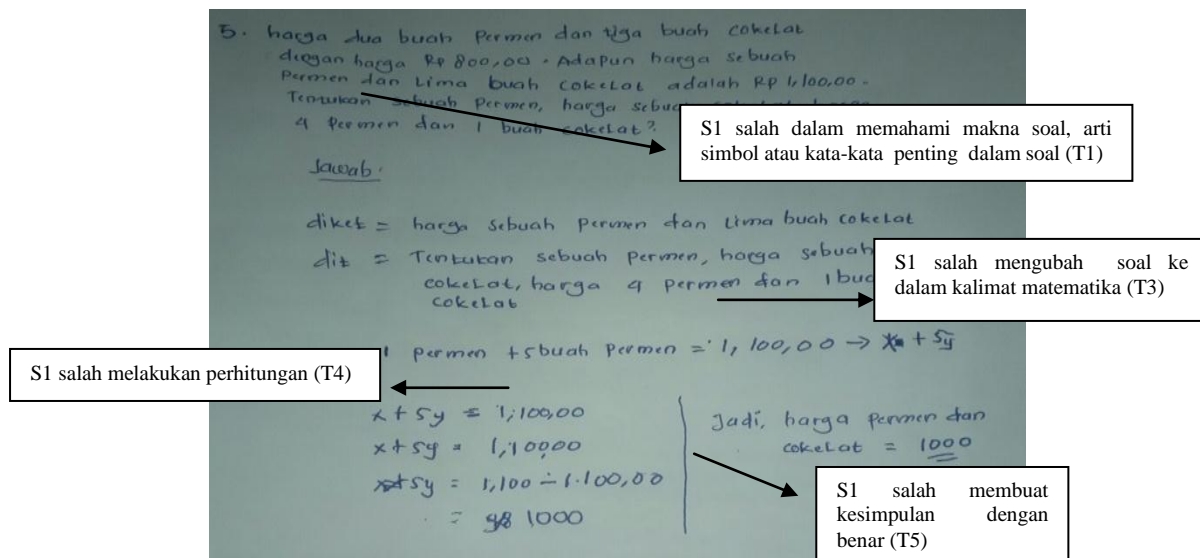 5. harga dua buah Permen dan tiga buah cokelat
dengan harga Rp 800,00. Adapun harga sebuah
Permen dan Lima buah cokelat adalah Rp 1,100,00.
Tentukan sebuah Permen, harga sebuah
4 Permen dan 1 buah cokelat?
S1 salah dalam memahami makna soal, arti
simbol atau kata-kata penting dalam soal (T1)
Jawab.
diket = harga sebuah permen dan Lima buah cokelat
dit = Tentukan sebuah Permen, harga sebuah
cokelat, harga 4 permen dan 1 buah
cokelat
S1 salah mengubah soal ke
dalam kalimat matematika (T3)
1 permen + 5 buah Permen = 1,100,00 → x + 5y
S1 salah melakukan perhitungan (T4)
x + 5y = 1,100,00
x + 5y = 1,100,00
x + 5y = 1,100 - 1.100,00
= 1000
Jadi, harga permen dan
cokelat = 1000
S1 salah membuat
kesimpulan dengan
benar (T5)